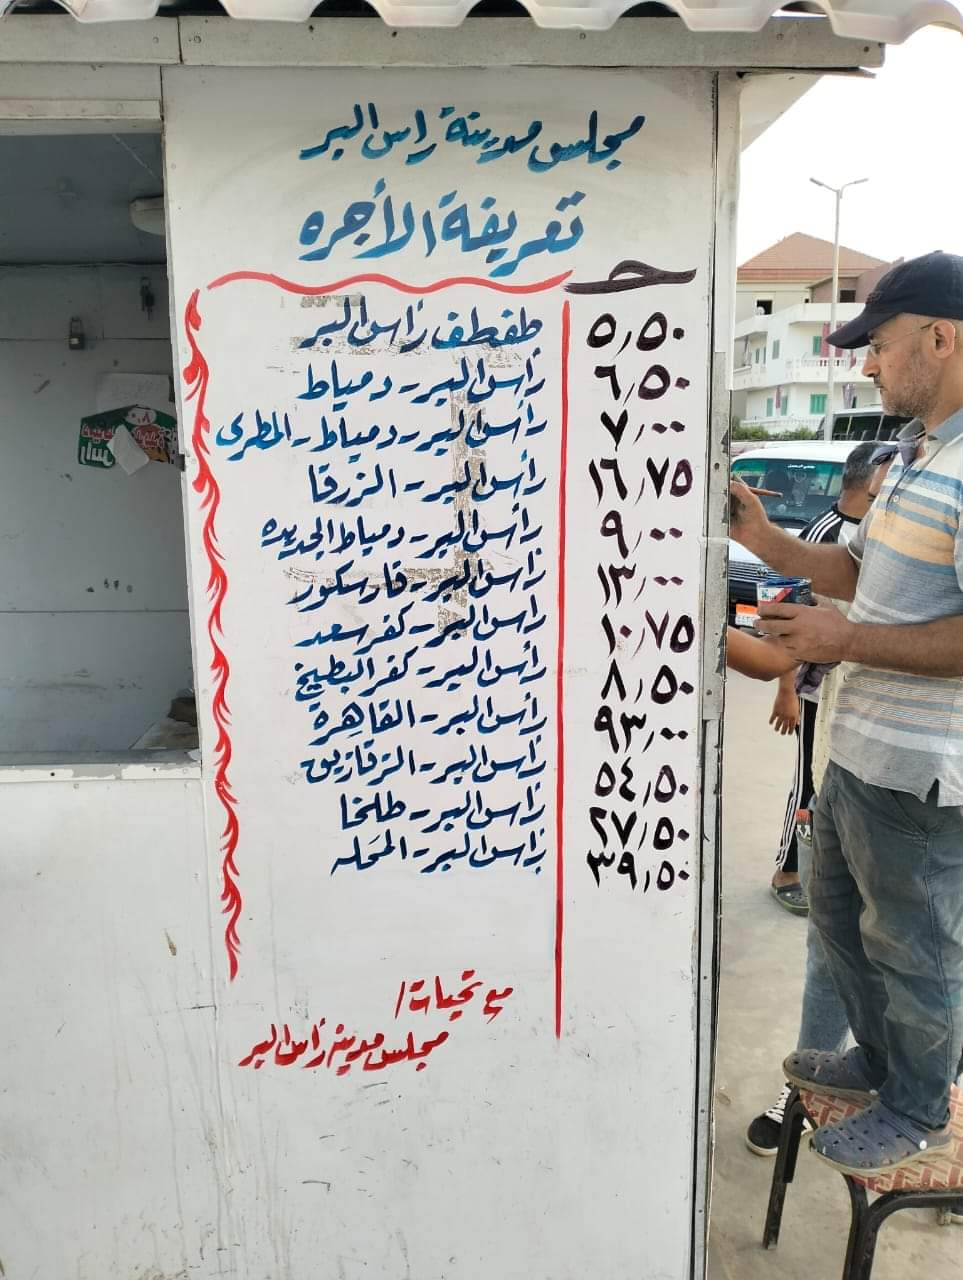 مجلس مدينة رأس البر
تعريفة الأجره
حـ
طفطف رأس البر ٥٫٥٠
رأس البر - دمياط ٦٫٥٠
رأس البر - دمياط - المطرى ٧٫٠٠
رأس البر - الزرقا ١٦٫٧٥
رأس البر - دمياط الجديده ٩٫٠٠
رأس البر - فارسكور ١٣٫٠٠
رأس البر - كفر سعد ١٠٫٧٥
رأس البر - كفر البطيخ ٨٫٥٠
رأس البر - القاهرة ٩٣٫٠٠
رأس البر - الزقازيق ٥٤٫٥٠
رأس البر - طلخا ٢٧٫٥٠
رأس البر - المحله ٣٩٫٥٠
مع تحيات /
مجلس مدينة رأس البر